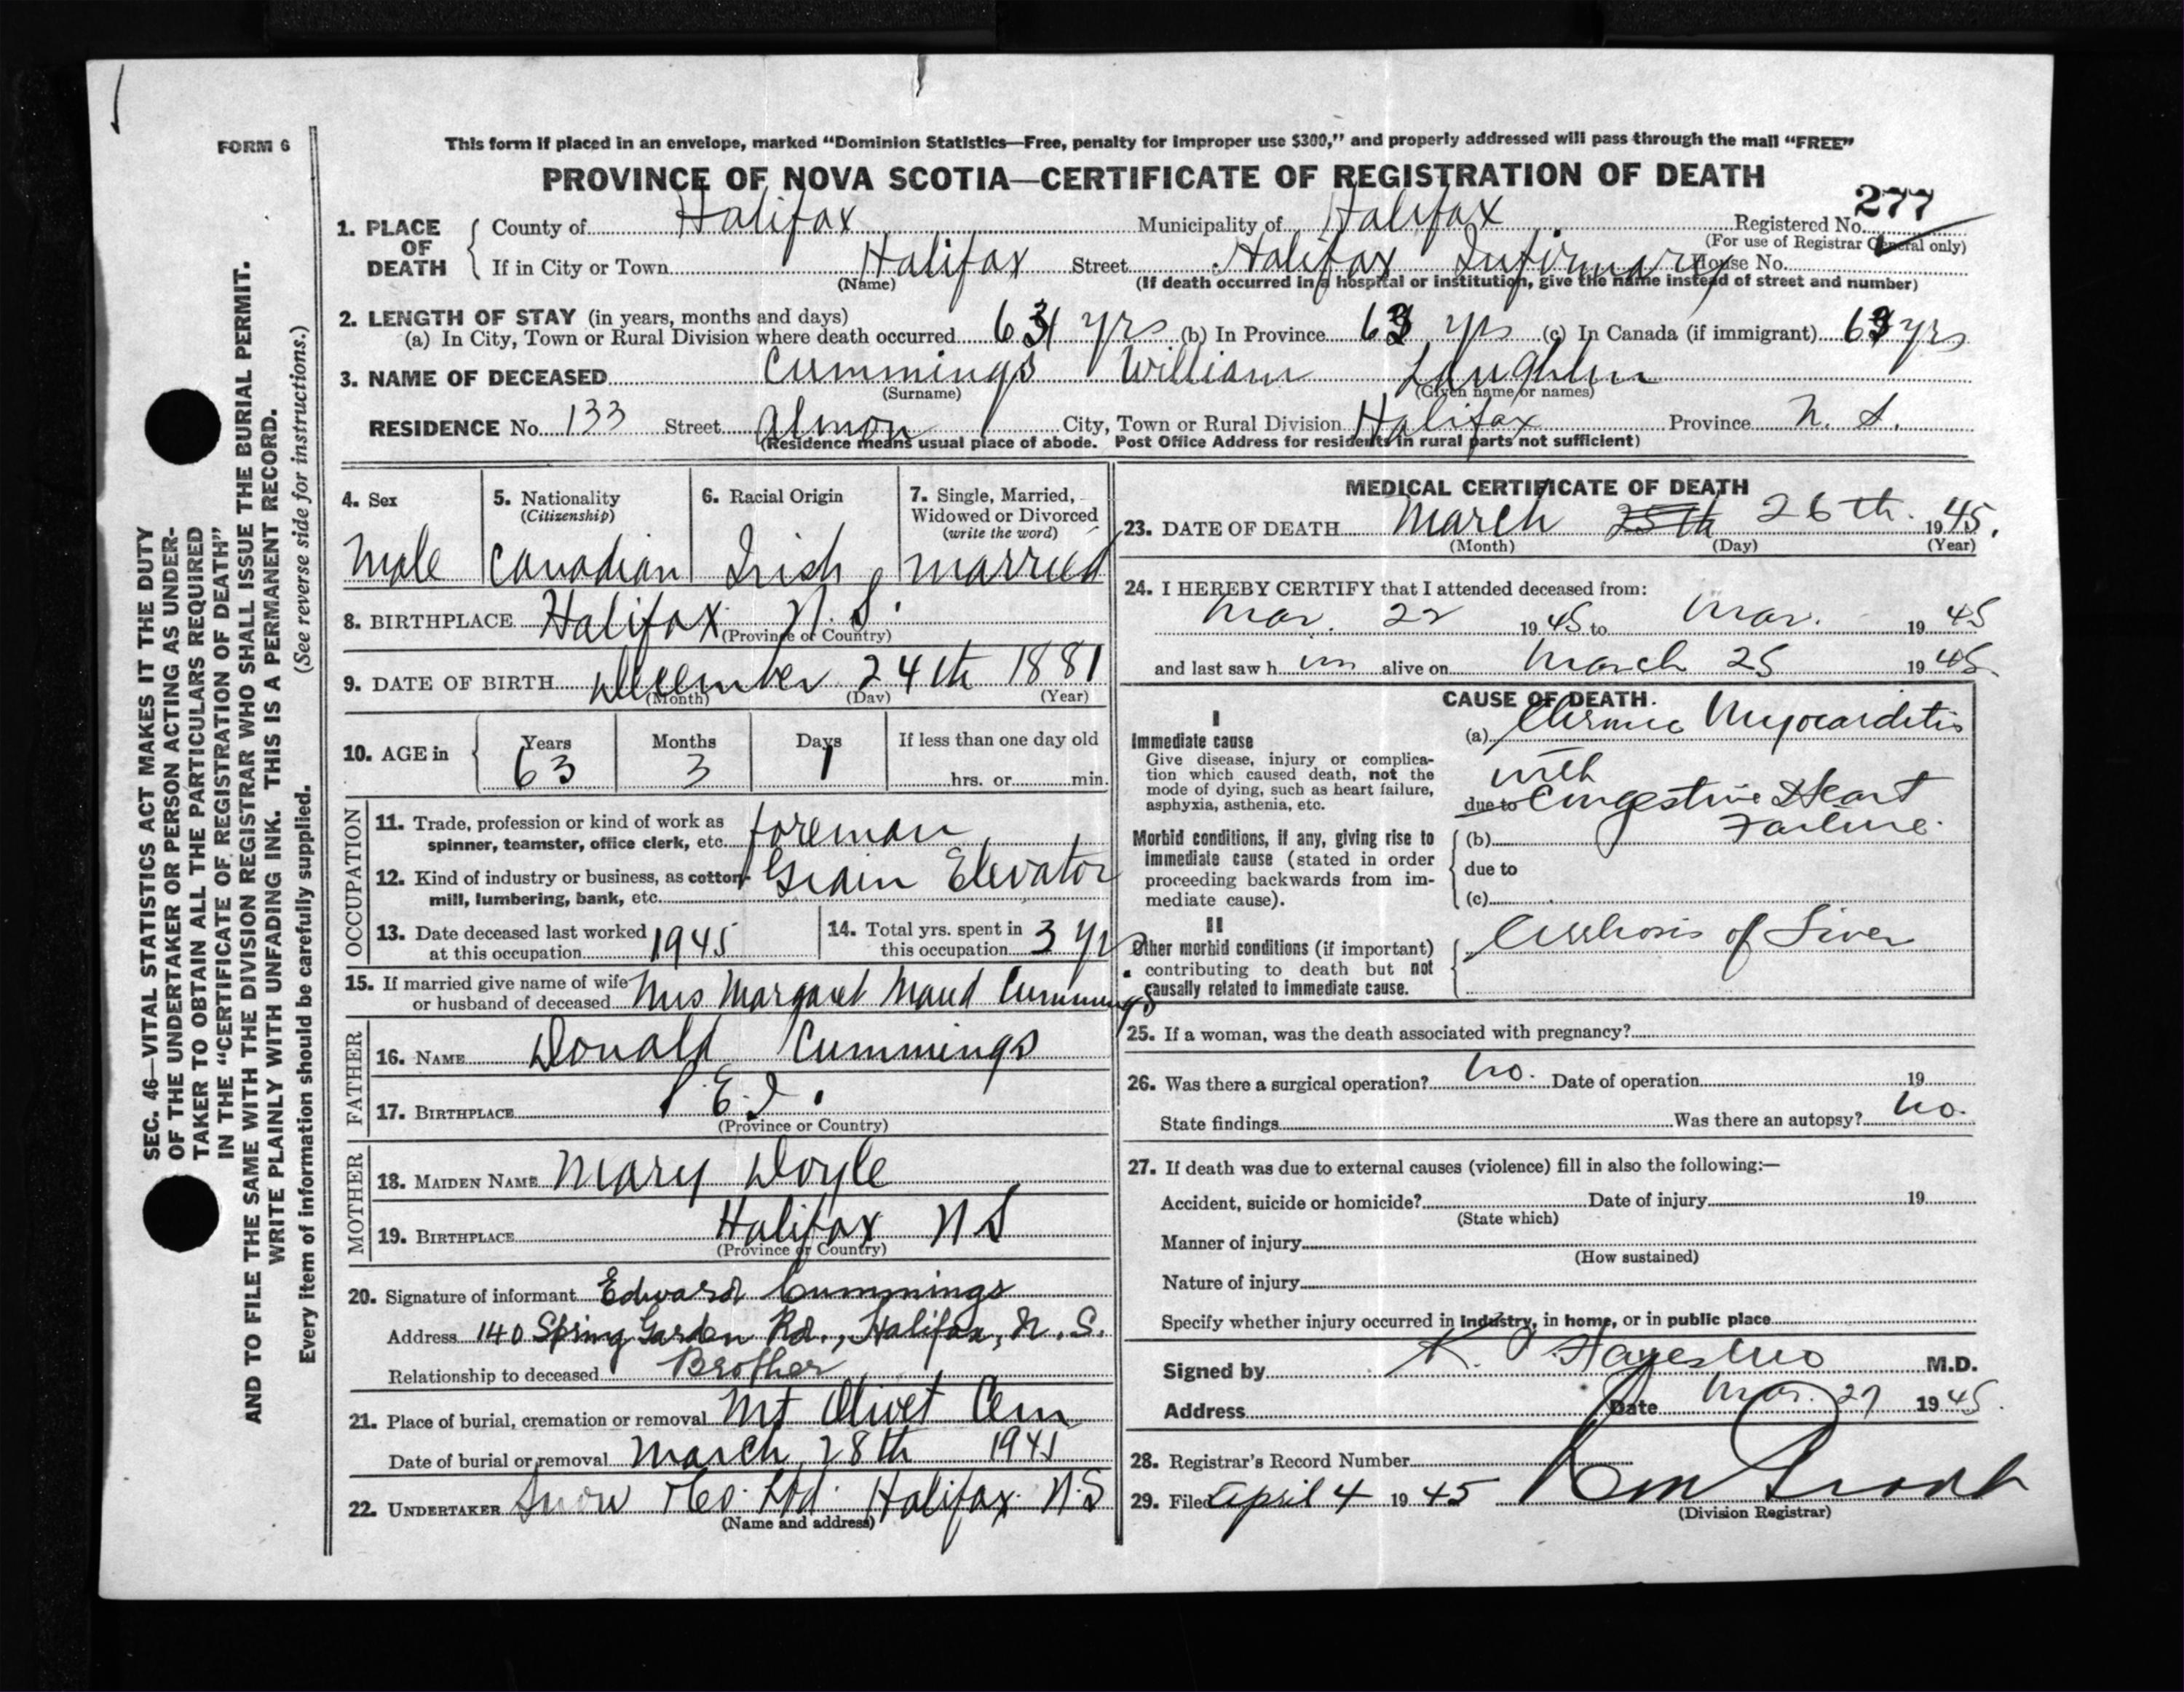 FORM 6
This form if placed in an envelope, marked “Dominion Statistics—Free, penalty for improper use $300,” and properly addressed will pass through the mail “FREE”
PROVINCE OF NOVA SCOTIA—CERTIFICATE OF REGISTRATION OF DEATH
277
1. PLACE OF DEATH County of Halifax Municipality of Halifax Registered No.
(For use of Registrar General only)
If in City or Town Halifax Street Halifax Infirmary House No.
(Name) (If death occurred in a hospital or institution, give the name instead of street and number)
2. LENGTH OF STAY (in years, months and days)
(a) In City, Town or Rural Division where death occurred 63 yrs (b) In Province 63 yrs (c) In Canada (if immigrant) 63 yrs
3. NAME OF DECEASED Cummings William Laughlin
(Surname) (Given name or names)
RESIDENCE No. 133 Street Almon City, Town or Rural Division Halifax Province N. S.
(Residence means usual place of abode. Post Office Address for residents in rural parts not sufficient)
4. Sex 5. Nationality (Citizenship) 6. Racial Origin 7. Single, Married, Widowed or Divorced (write the word)
Male Canadian Irish married
8. BIRTHPLACE Halifax N. S.
(Province or Country)
9. DATE OF BIRTH December 24th 1881
(Month) (Day) (Year)
10. AGE in Years Months Days If less than one day old
63 3 1 hrs. or min.
OCCUPATION
11. Trade, profession or kind of work as
spinner, teamster, office clerk, etc. foreman
12. Kind of industry or business, as cotton
mill, lumbering, bank, etc. Grain Elevator
13. Date deceased last worked at this occupation 1945 14. Total yrs. spent in this occupation 3 yrs
15. If married give name of wife
or husband of deceased Mrs Margaret Maud Cummings
FATHER
16. NAME Donald Cummings
17. BIRTHPLACE P.E.I.
(Province or Country)
MOTHER
18. MAIDEN NAME Mary Doyle
19. BIRTHPLACE Halifax N S
(Province or Country)
20. Signature of informant Edward Cummings
Address 140 Spring Garden Rd., Halifax, N. S.
Relationship to deceased Brother
21. Place of burial, cremation or removal Mt Olivet Cem
Date of burial or removal March 28th 1945
22. UNDERTAKER Snow & Co. Ltd. Halifax N.S
(Name and address)
MEDICAL CERTIFICATE OF DEATH
23. DATE OF DEATH March 25th 26th. 1945.
(Month) (Day) (Year)
24. I HEREBY CERTIFY that I attended deceased from:
Mar. 22 1945 to Mar. 1945
and last saw h im alive on March 25 1945
CAUSE OF DEATH.
I
Immediate cause
Give disease, injury or complication which caused death, not the mode of dying, such as heart failure, asphyxia, asthenia, etc.
(a) Chronic Myocarditis
with
due to Congestive Heart
Failure.
Morbid conditions, if any, giving rise to immediate cause (stated in order proceeding backwards from immediate cause).
(b)
due to
(c)
II
Other morbid conditions (if important) contributing to death but not causally related to immediate cause.
Cirrhosis of Liver
25. If a woman, was the death associated with pregnancy?
26. Was there a surgical operation? No. Date of operation 19
State findings Was there an autopsy? No.
27. If death was due to external causes (violence) fill in also the following:—
Accident, suicide or homicide? Date of injury 19
(State which)
Manner of injury
(How sustained)
Nature of injury
Specify whether injury occurred in industry, in home, or in public place
Signed by K. Hayes M.D.
Address Date Mar. 27 1945.
28. Registrar's Record Number
29. Filed April 4 1945
(Division Registrar)
SEC. 46—VITAL STATISTICS ACT MAKES IT THE DUTY
OF THE UNDERTAKER OR PERSON ACTING AS UNDER-
TAKER TO OBTAIN ALL THE PARTICULARS REQUIRED
IN THE “CERTIFICATE OF REGISTRATION OF DEATH”
AND TO FILE THE SAME WITH THE DIVISION REGISTRAR WHO SHALL ISSUE THE BURIAL PERMIT.
WRITE PLAINLY WITH UNFADING INK. THIS IS A PERMANENT RECORD.
Every item of information should be carefully supplied. (See reverse side for instructions.)